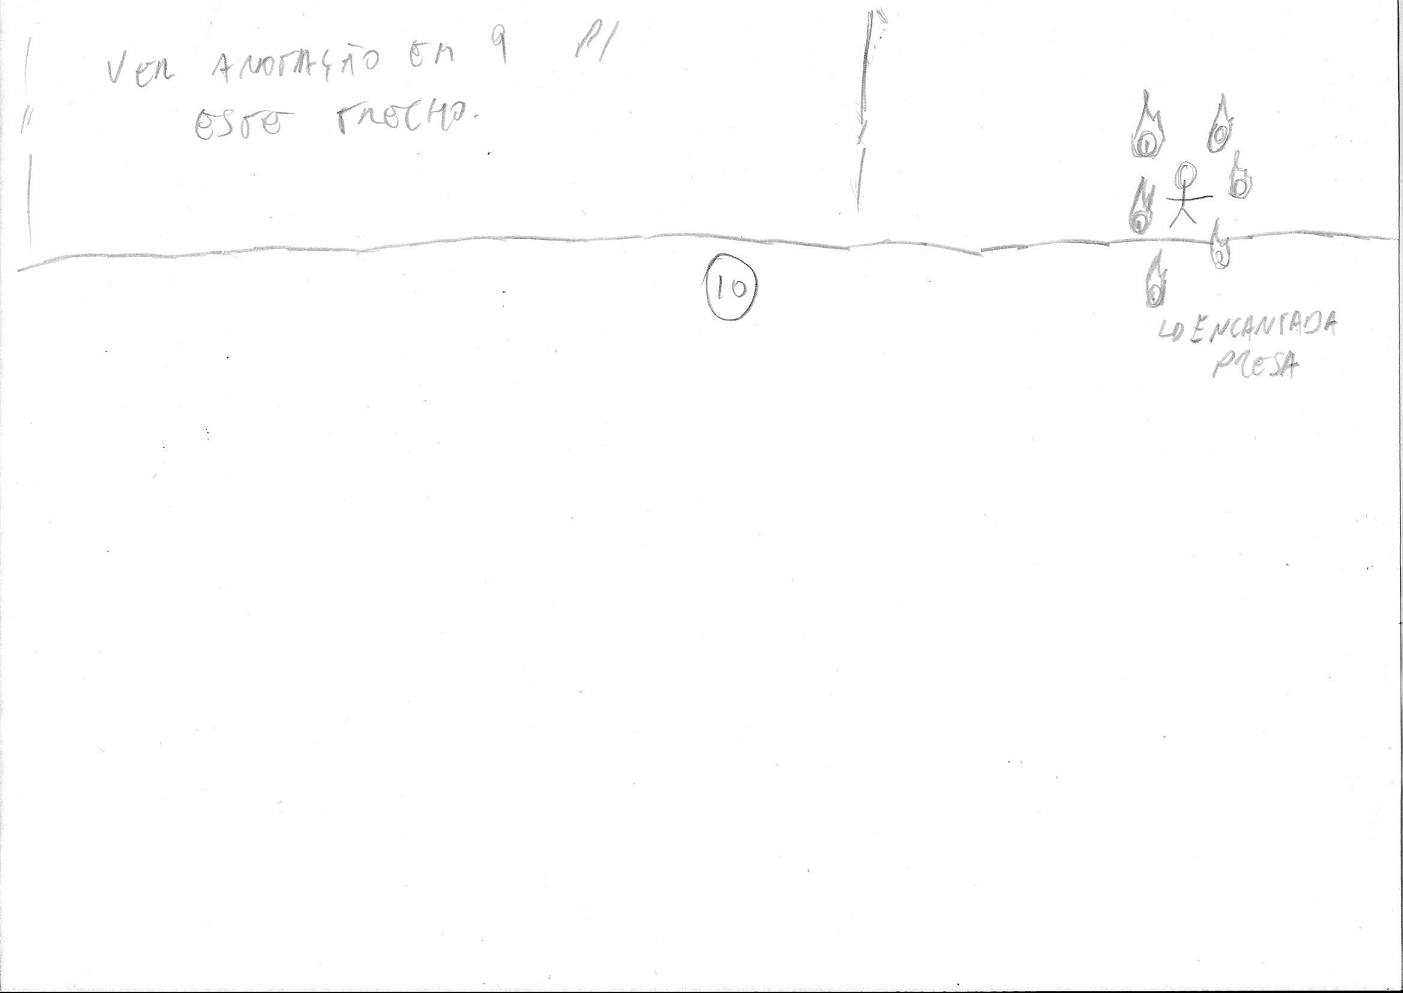 VER ANOTAÇÃO EM 9 P/
ESTE TRECHO.
10
↳ ENCANTADA
PRESA